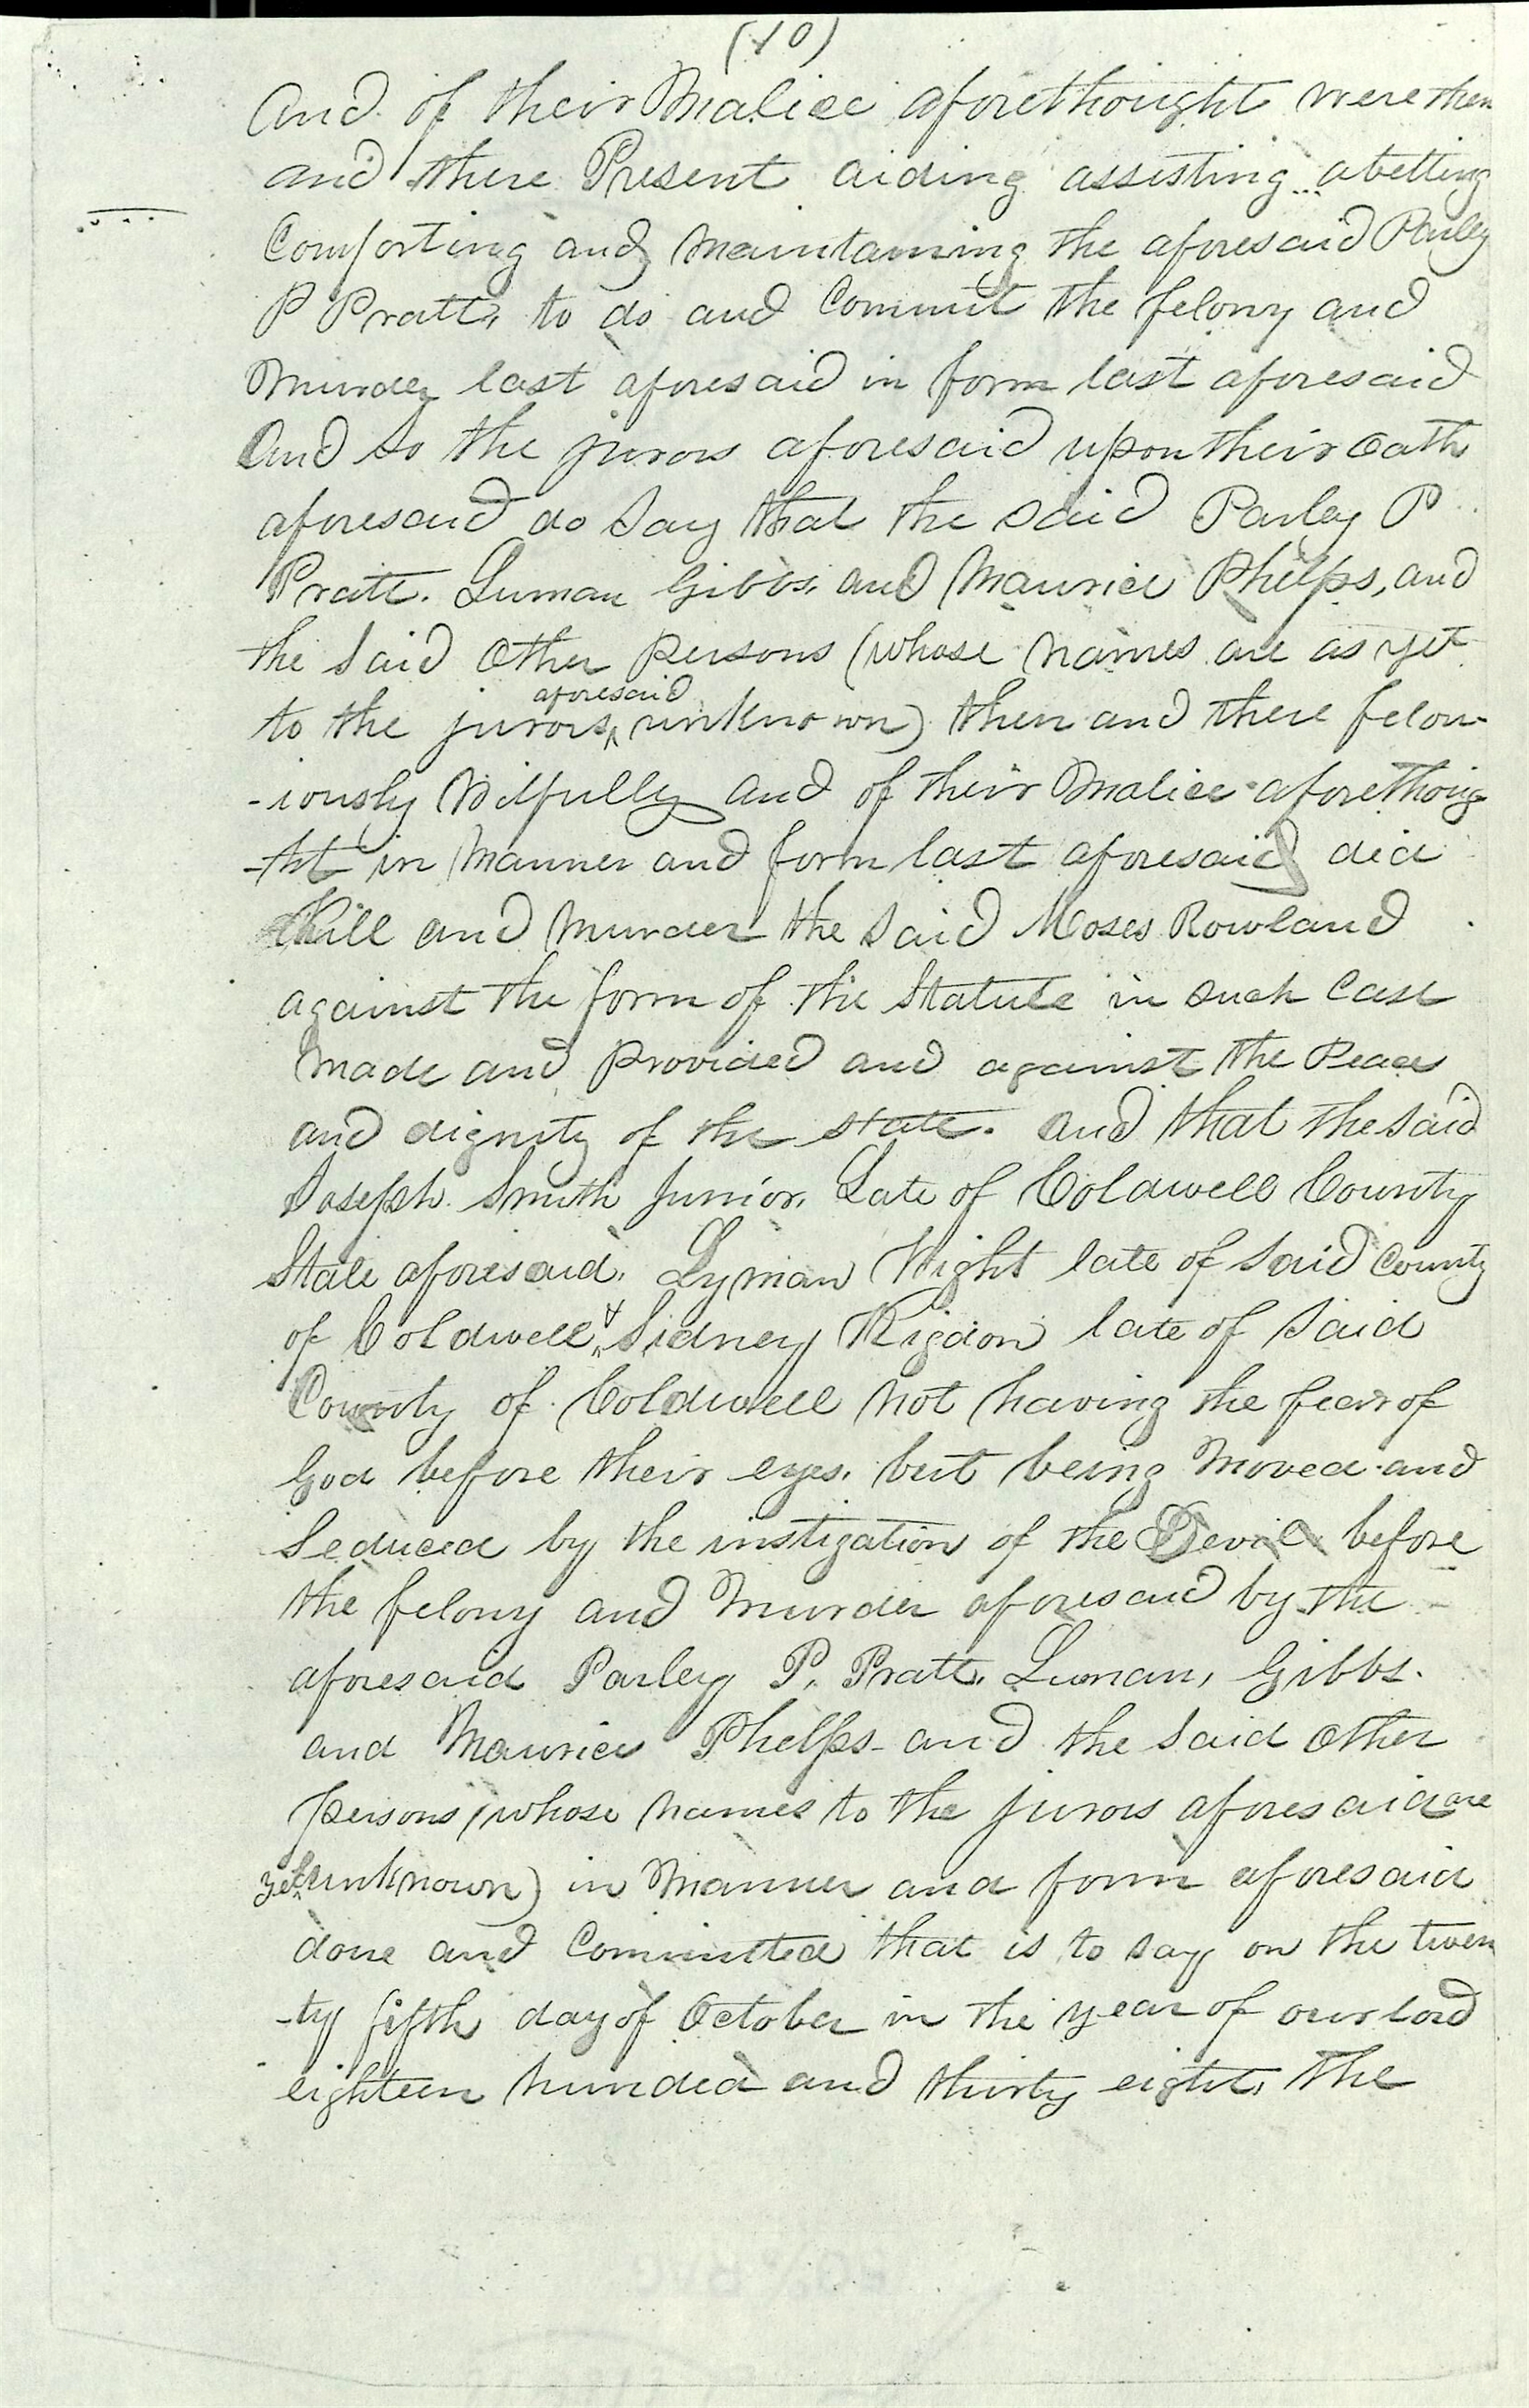 (10)
And of their Malice aforethought were then
and there Present aiding assisting abetting
Comforting and Maintaining the aforesaid Parley
P Pratt, to do and Commit the felony and
Murder last aforesaid in form last aforesaid
And so the jurors aforesaid upon their Oath
aforesaid do Say that the said Parley P
Pratt. Luman Gibbs, and Maurice Phelps, and
the Said Other Persons (whose Names are as yet
to the jurors ^aforesaid unknown) then and there felon-
-iously Wilfully and of their Malice aforethoug
-ht in Manner and form last aforesaid did
Kill and Murder the Said Moses Rowland
against the form of the Statute in such Case
Made and Provided and against the Peace
and dignity of the State. And that the Said
Joseph Smith Junior, Late of Coldwell County
State aforesaid, Lyman Wight late of Said County
of Coldwell ^& Sidney Rigdon late of Said
County of Coldwell Not having the fear of
God before their eyes, but being Moved and
Seduced by the instigation of the Devil before
the felony and Murder aforesaid by the
aforesaid Parley P. Pratt, Luman, Gibbs.
and Maurice Phelps and the Said Other
Persons (whose Names to the jurors aforesaid are
yet unknown) in Manner and form aforesaid
done and Committed that is to say on the twen
-ty fifth day of October in the year of our lord
eighteen hundred and thirty eight, the